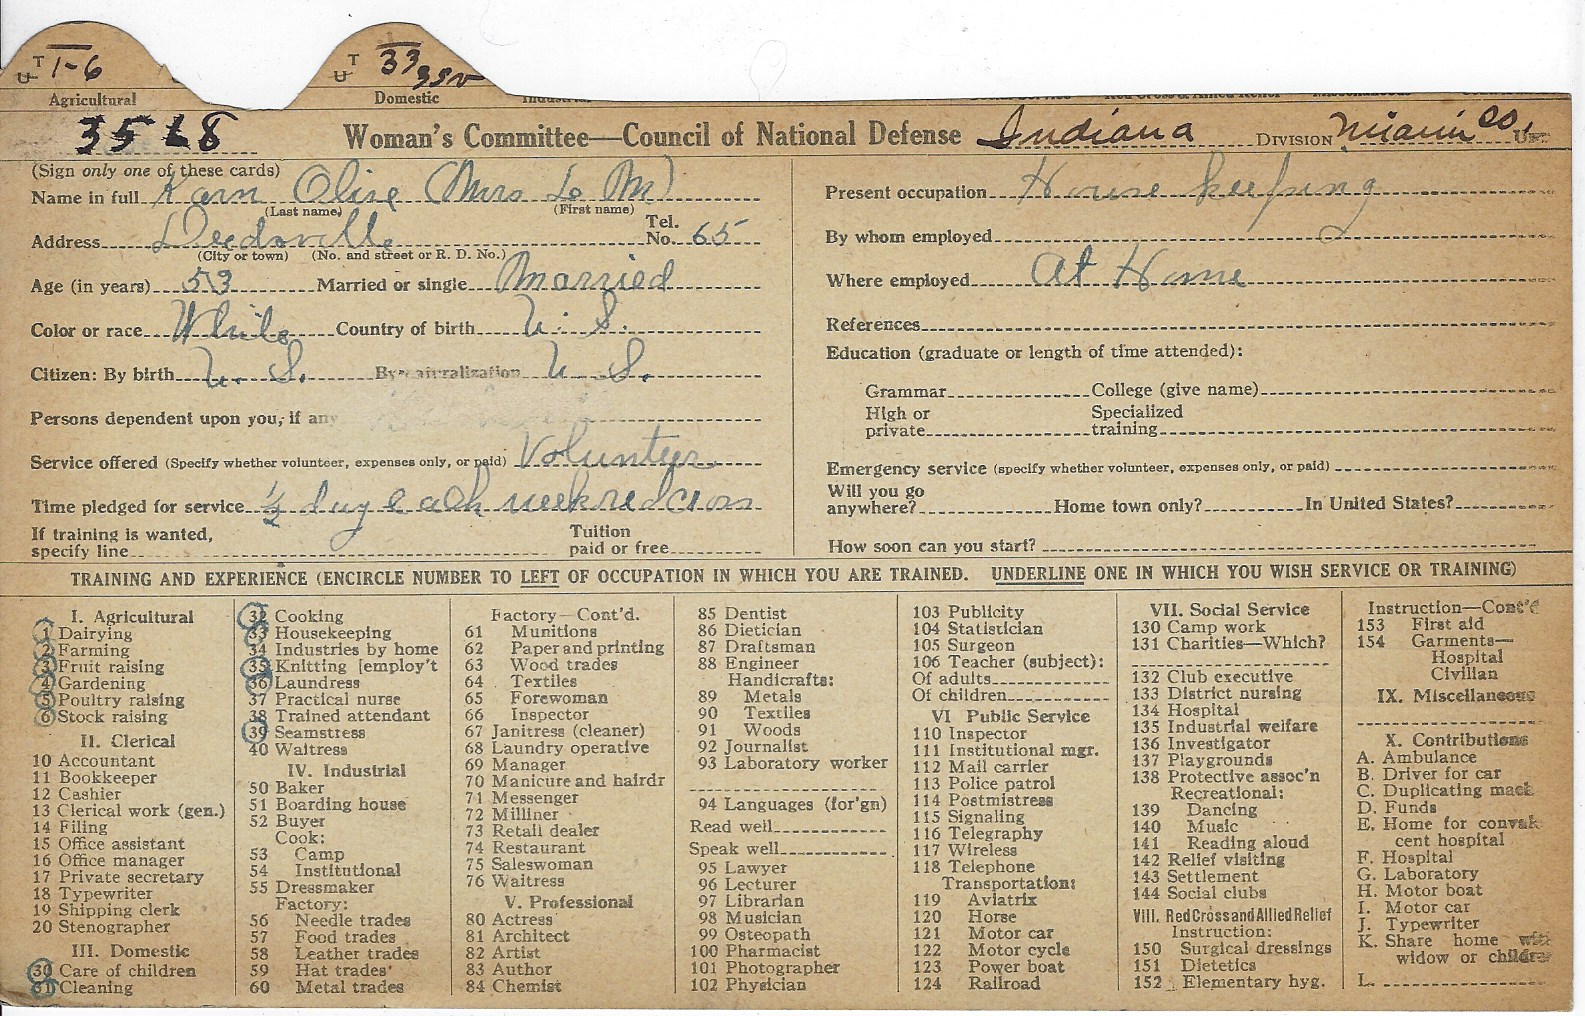 T 1-6 T 33 35
U U
Agricultural Domestic
3568 Woman's Committee—Council of National Defense Indiana Division Miami Co.
(Sign only one of these cards)
Name in full Karn Olive (Mrs L. M)
(Last name) (First name)
Address Deedsville Tel. No. 65
(City or town) (No. and street or R. D. No.)
Age (in years) 53 Married or single Married
Color or race White Country of birth U. S.
Citizen: By birth U. S. By naturalization U. S.
Persons dependent upon you, if any
Service offered (Specify whether volunteer, expenses only, or paid) Volunteer
Time pledged for service ½ day each week red cross
If training is wanted, specify line Tuition paid or free
Present occupation House keeping
By whom employed
Where employed At Home
References
Education (graduate or length of time attended):
Grammar College (give name)
High or private Specialized training
Emergency service (specify whether volunteer, expenses only, or paid)
Will you go anywhere? Home town only? In United States?
How soon can you start?
TRAINING AND EXPERIENCE (ENCIRCLE NUMBER TO LEFT OF OCCUPATION IN WHICH YOU ARE TRAINED. UNDERLINE ONE IN WHICH YOU WISH SERVICE OR TRAINING)
I. Agricultural
1 Dairying
2 Farming
3 Fruit raising
4 Gardening
5 Poultry raising
6 Stock raising
II. Clerical
10 Accountant
11 Bookkeeper
12 Cashier
13 Clerical work (gen.)
14 Filing
15 Office assistant
16 Office manager
17 Private secretary
18 Typewriter
19 Shipping clerk
20 Stenographer
III. Domestic
30 Care of children
31 Cleaning
32 Cooking
33 Housekeeping
34 Industries by home
35 Knitting [employ't
36 Laundress
37 Practical nurse
38 Trained attendant
39 Seamstress
40 Waitress
IV. Industrial
50 Baker
51 Boarding house
52 Buyer
Cook:
53 Camp
54 Institutional
55 Dressmaker
Factory:
56 Needle trades
57 Food trades
58 Leather trades
59 Hat trades
60 Metal trades
Factory—Cont'd.
61 Munitions
62 Paper and printing
63 Wood trades
64 Textiles
65 Forewoman
66 Inspector
67 Janitress (cleaner)
68 Laundry operative
69 Manager
70 Manicure and hairdr
71 Messenger
72 Milliner
73 Retail dealer
74 Restaurant
75 Saleswoman
76 Waitress
V. Professional
80 Actress
81 Architect
82 Artist
83 Author
84 Chemist
85 Dentist
86 Dietician
87 Draftsman
88 Engineer
Handicrafts:
89 Metals
90 Textiles
91 Woods
92 Journalist
93 Laboratory worker
94 Languages (for'gn)
Read well
Speak well
95 Lawyer
96 Lecturer
97 Librarian
98 Musician
99 Osteopath
100 Pharmacist
101 Photographer
102 Physician
103 Publicity
104 Statistician
105 Surgeon
106 Teacher (subject):
Of adults
Of children
VI Public Service
110 Inspector
111 Institutional mgr.
112 Mail carrier
113 Police patrol
114 Postmistress
115 Signaling
116 Telegraphy
117 Wireless
118 Telephone
Transportation:
119 Aviatrix
120 Horse
121 Motor car
122 Motor cycle
123 Power boat
124 Railroad
VII. Social Service
130 Camp work
131 Charities—Which?
132 Club executive
133 District nursing
134 Hospital
135 Industrial welfare
136 Investigator
137 Playgrounds
138 Protective assoc'n
Recreational:
139 Dancing
140 Music
141 Reading aloud
142 Relief visiting
143 Settlement
144 Social clubs
VIII. Red Cross and Allied Relief
Instruction:
150 Surgical dressings
151 Dietetics
152 Elementary hyg.
Instruction—Cont'd
153 First aid
154 Garments—
Hospital
Civilian
IX. Miscellaneous
X. Contributions
A. Ambulance
B. Driver for car
C. Duplicating mach
D. Funds
E. Home for convales
cent hospital
F. Hospital
G. Laboratory
H. Motor boat
I. Motor car
J. Typewriter
K. Share home with
widow or children
L.